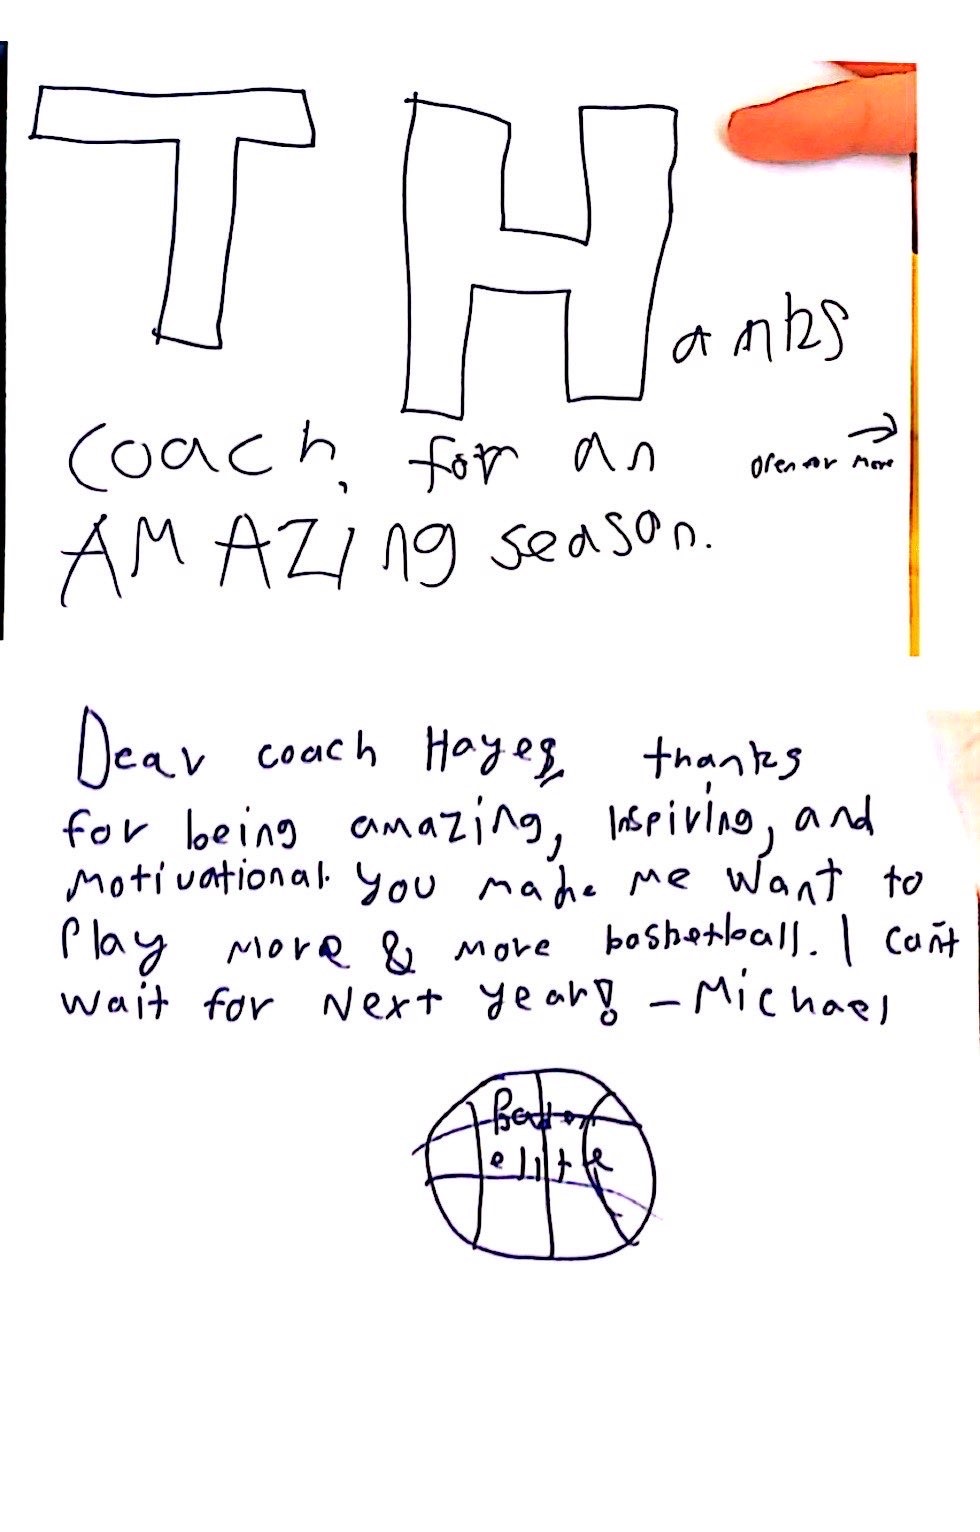 THanks
coach, for an
open for more
AMAZing season.
Dear coach Hayes, thanks
for being amazing, Inspiring, and
Motivational. You made me want to
Play more & more basketball. I can't
wait for next year! - Michael
elite